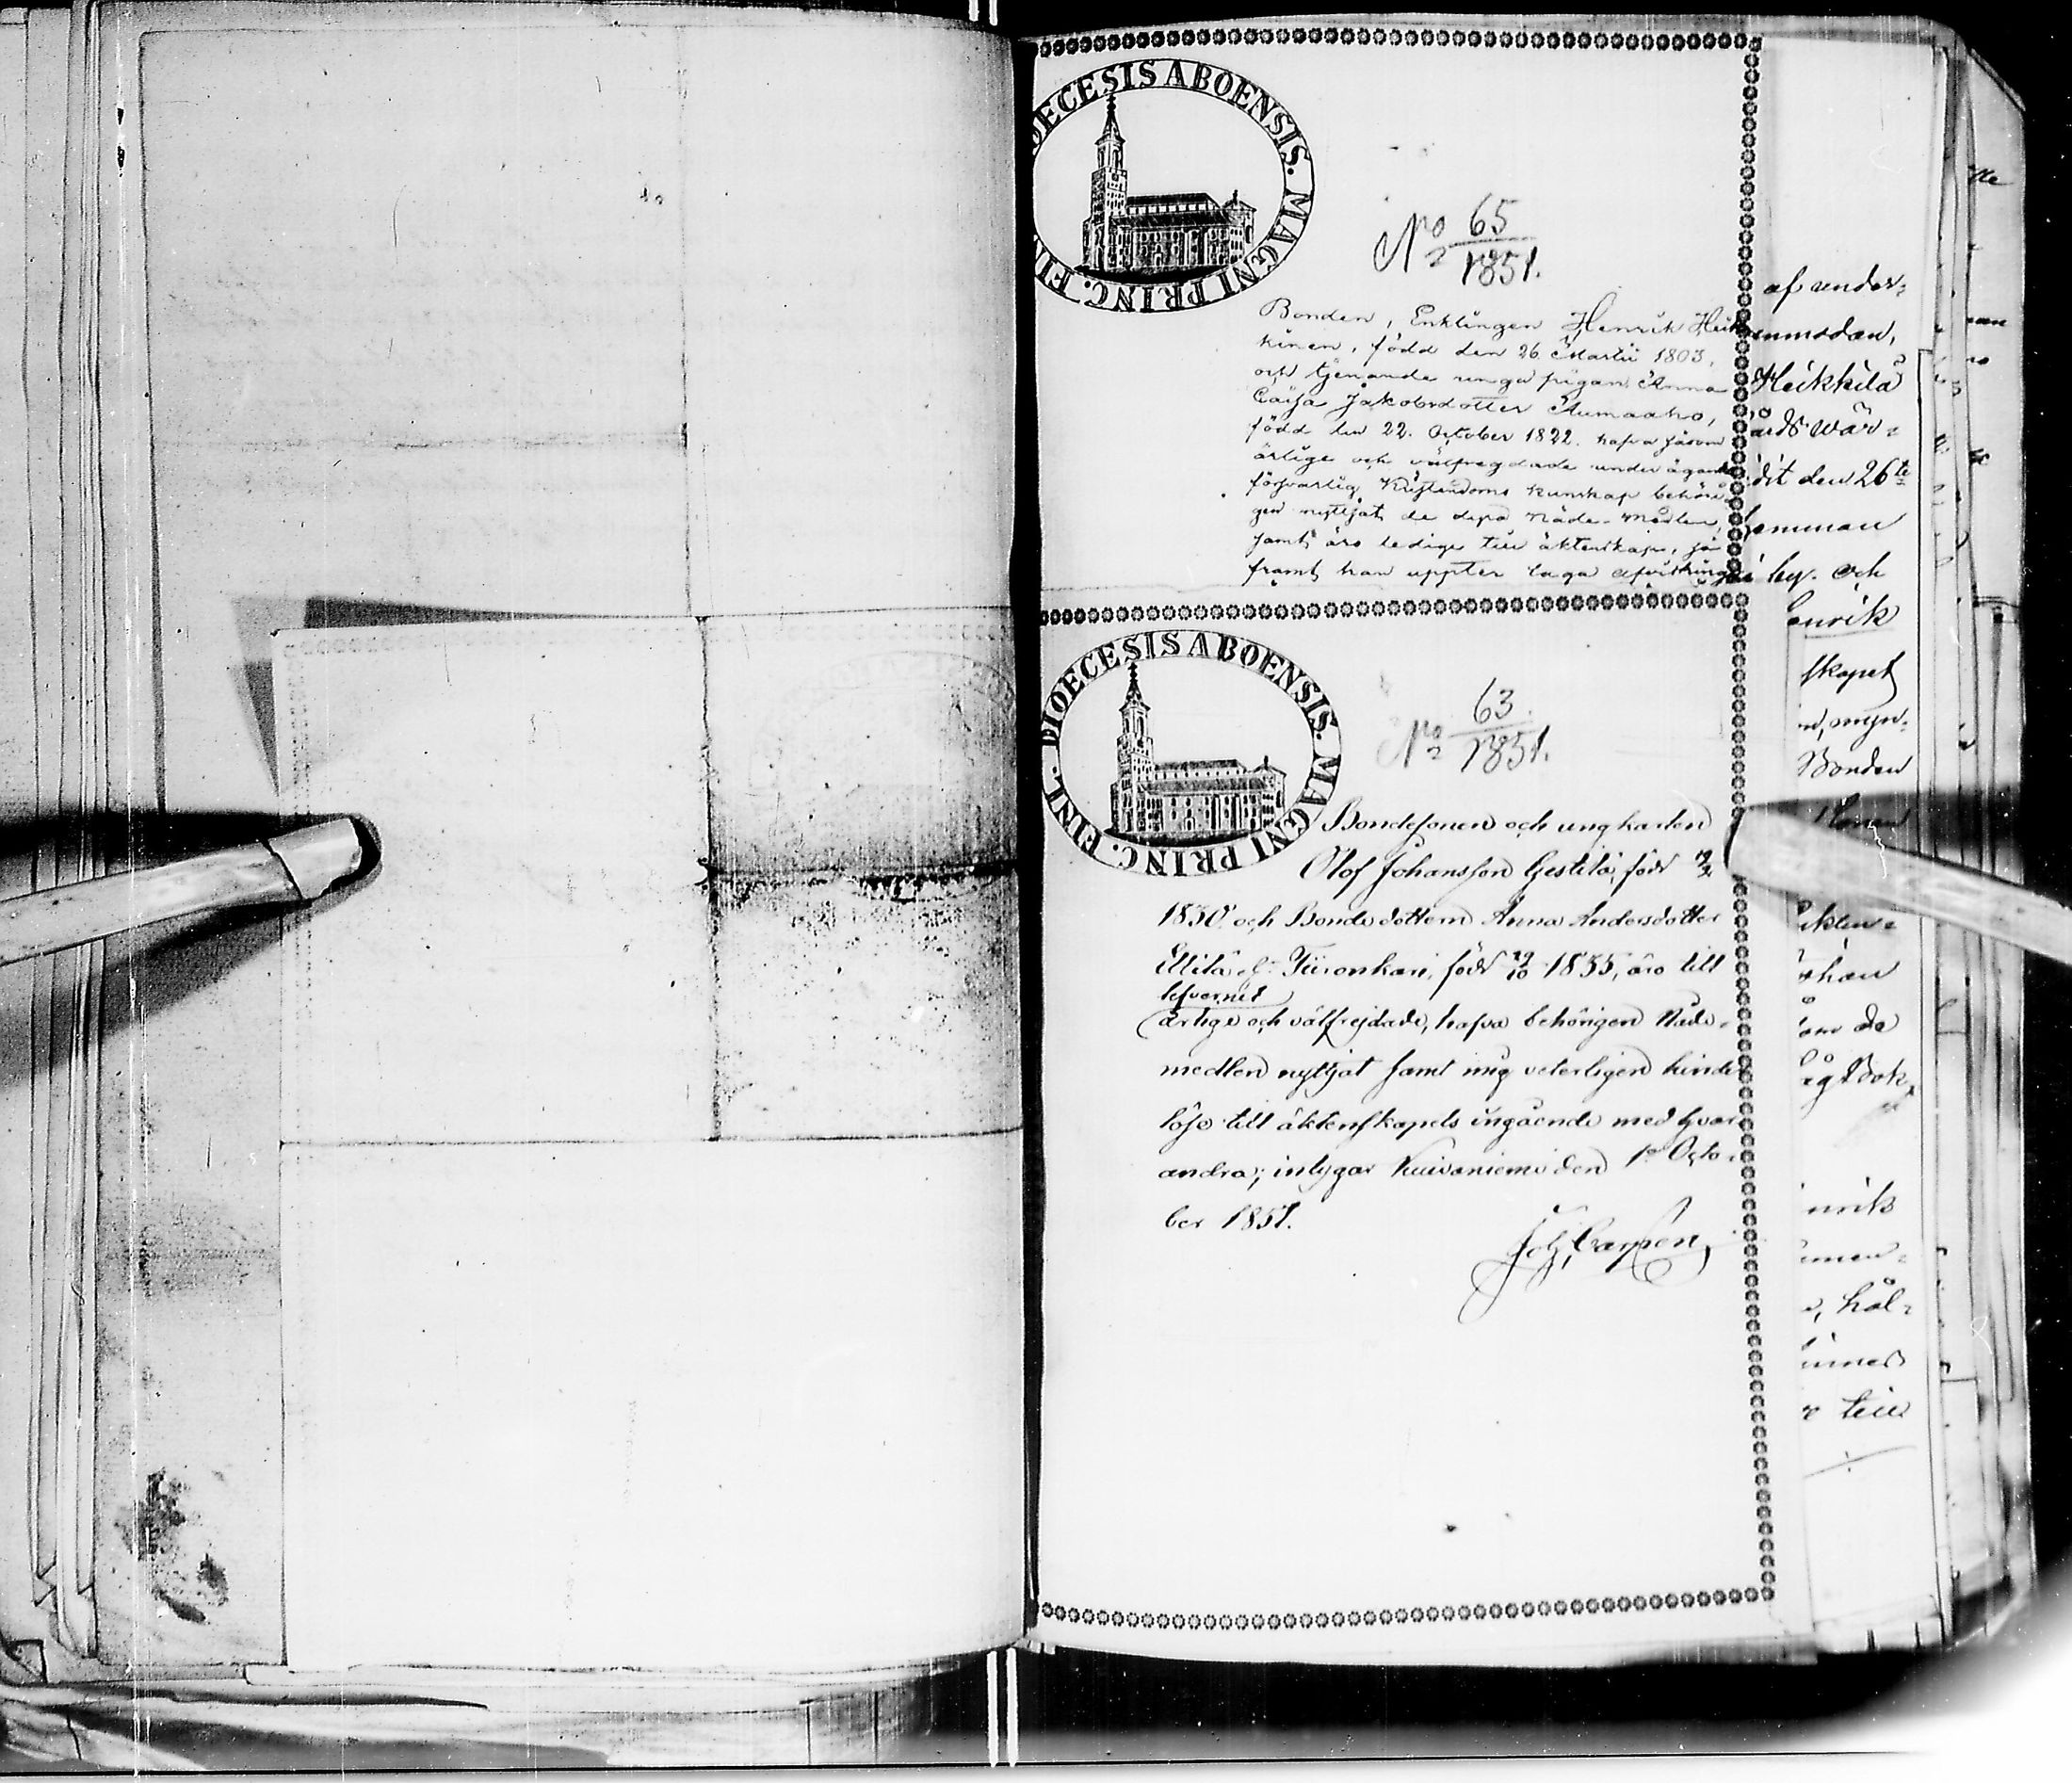 DIOECESIS ABOENSIS. MAGNI PRINC. FINL.
No 65
1851.
Bonden, Enklingen Henrik Heik
kinen, född den 26 Martii 1803,
och tjenande unga pigan Anna
Caisa Jakobsdotter Aumaaho,
född den 22. October 1822. hafva såsom
ärlige och välfregdade under ägande
försvarlig Kristendoms kunskap behöri-
gen nyttjat de dyra Nåde-Medlen,
samt äro ledige till äktenskap, så
framt han uppter laga afvittring
DIOECESIS ABOENSIS. MAGNI PRINC. FINL.
No 63.
1851.
Bondesonen och ungkarlen
Olof Johansson Gestilä, född
1830 och Bondedottern Anna Andersdotter
Ellilä Tiironkari, född 29/10 1835, äro till
lefvernet
ärlige och välfrejdade, hafva behörigen Nåde-
medlen nyttjat samt mig veterligen hinder
löse till äktenskapets ingående med hvar
andra; intygar Kuivaniemi den 1a Octo-
ber 1851.
af under-
mmodan,
Heikkilä
ards wär-
dit den 26te
hemman
i by. och
enrik
skapet
n, myn-
Bonden
than
om de
nrik
, hål-